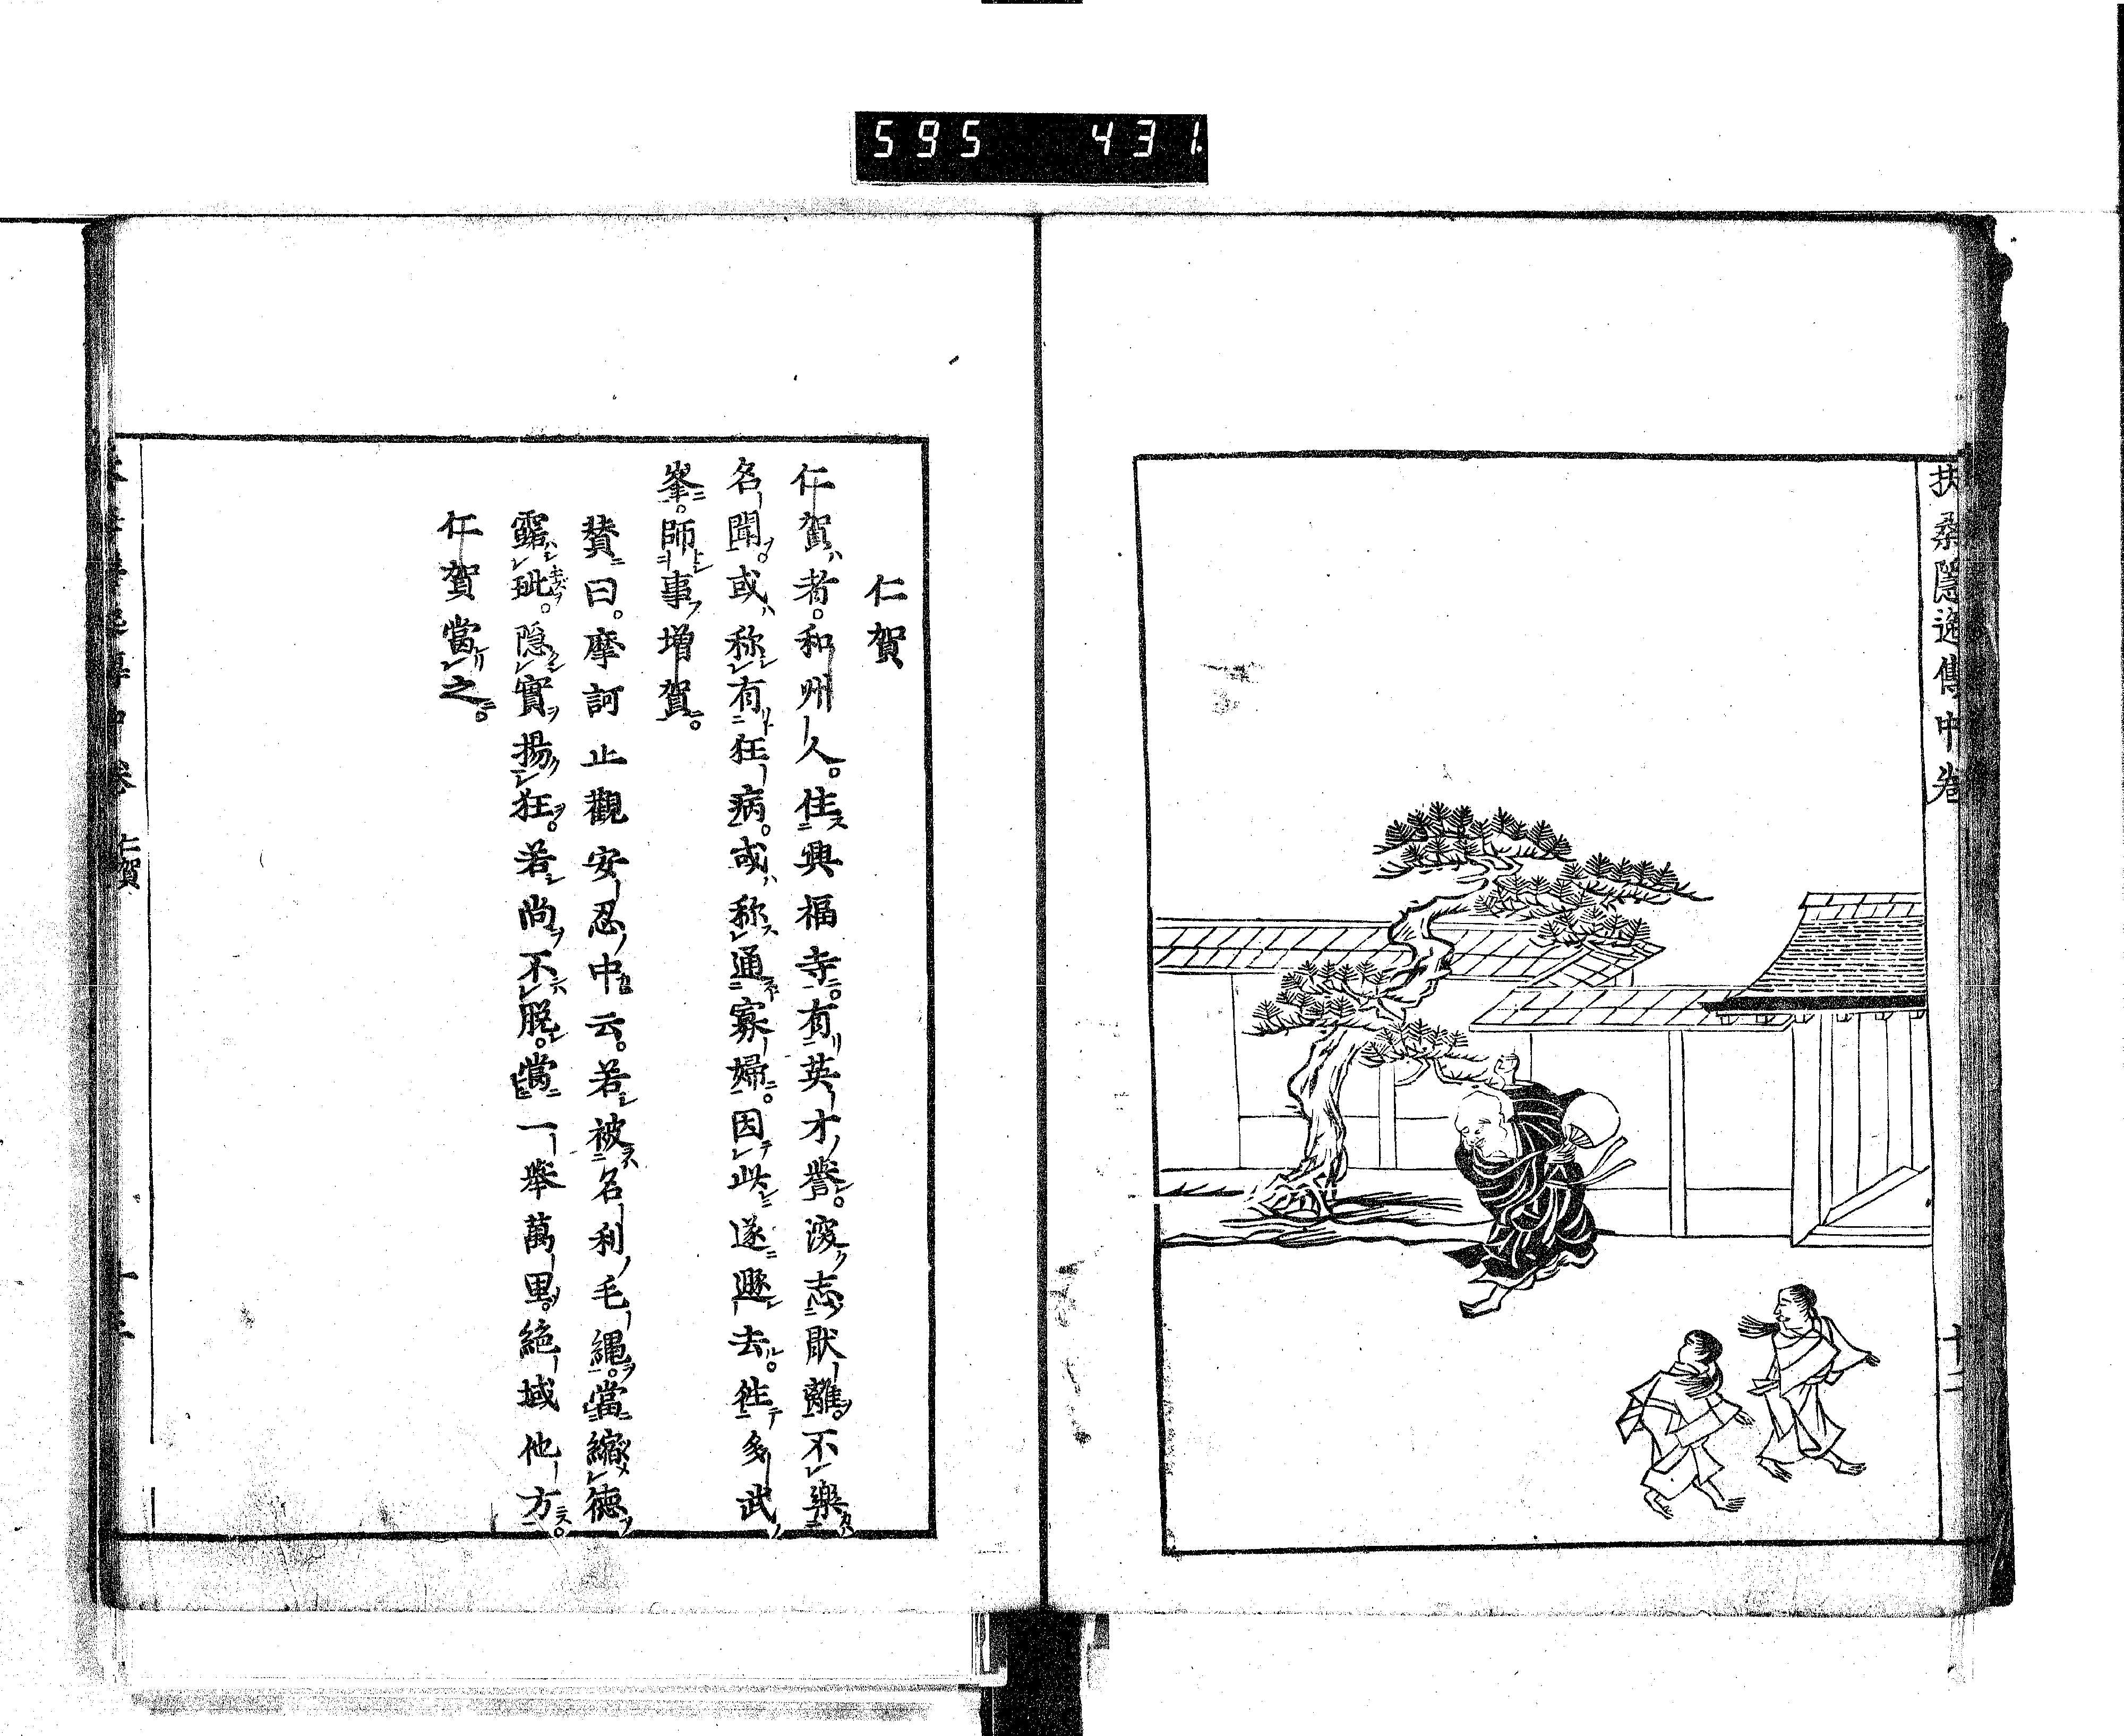 595 431
扶桑隱逸傳中卷 十二
仁賀
仁賀者。和州人。住興福寺。有英才譽。深志厭離。不樂
名聞。或称有狂病。或称通寡婦。因此遂遯去。往多武
峯。師事增賀。
賛曰。摩訶止觀安忍中云。若被名利毛繩。當縮德
露玼。隱實揚狂。若尚不脱。當一擧萬里。絶域他方。
仁賀當之。
中卷 仁賀